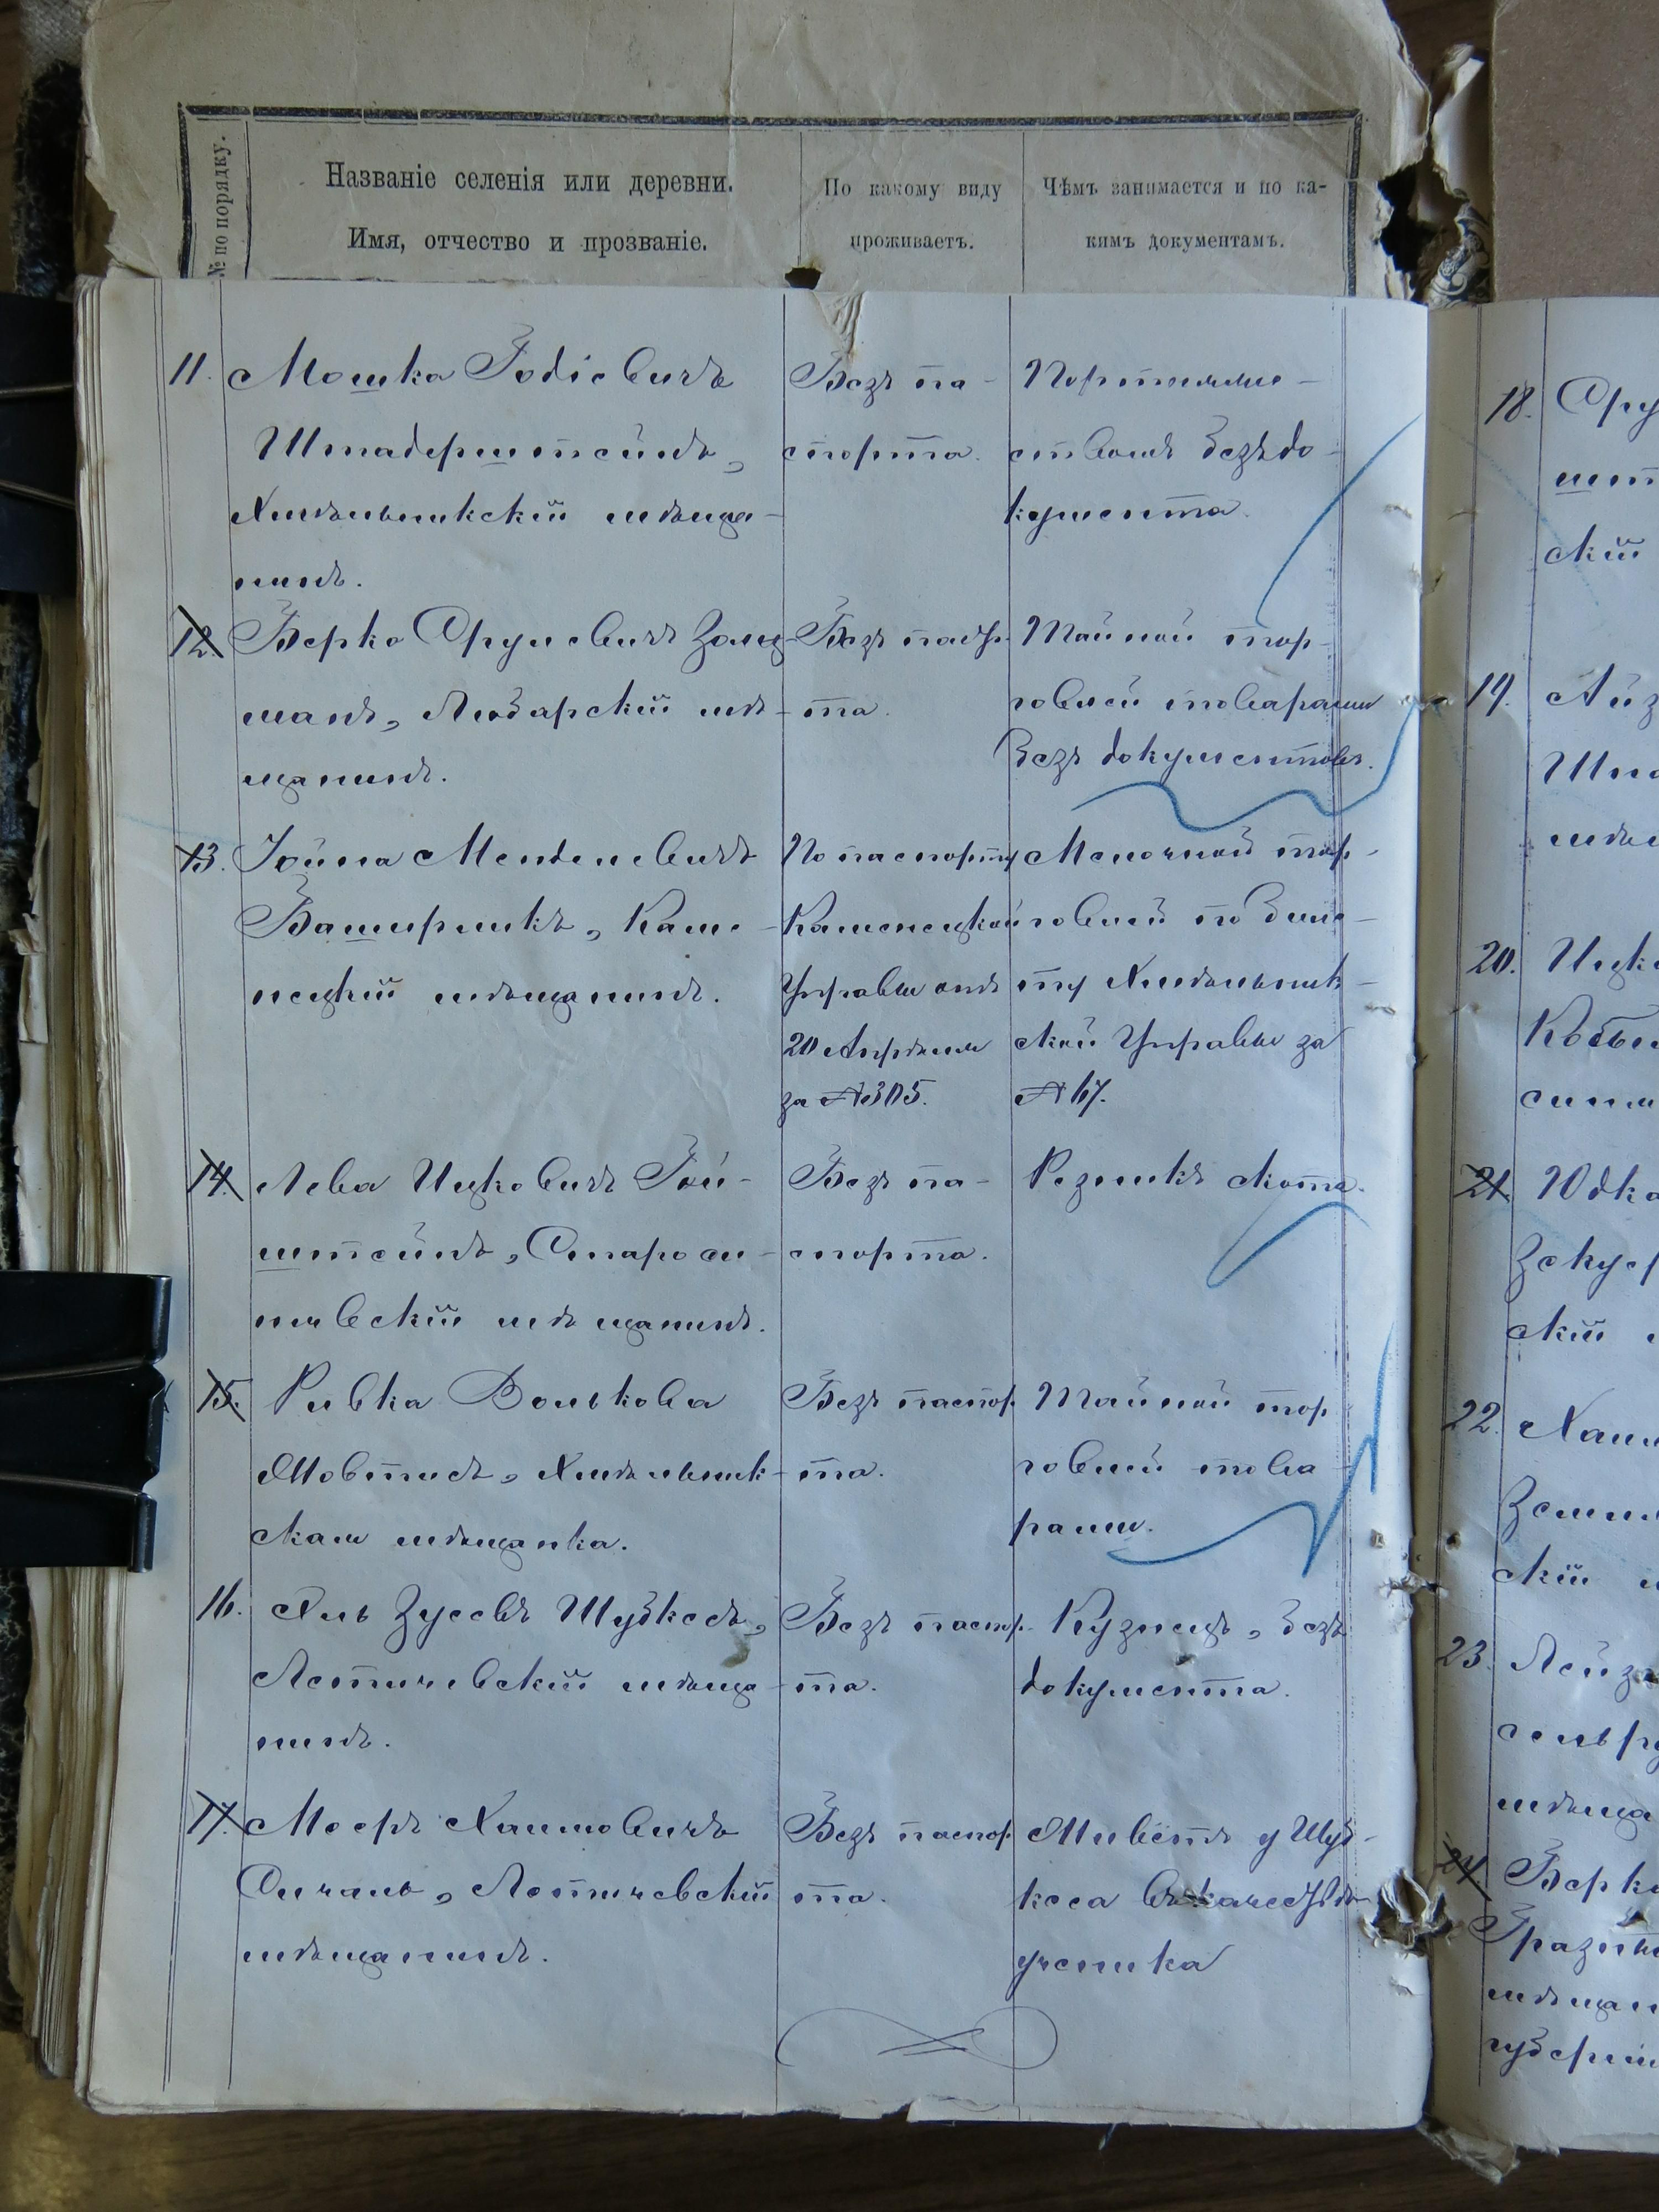 № по порядку.
Названіе селенія или деревни.
Имя, отчество и прозваніе.
По какому виду
проживаетъ.
Чѣмъ занимается и по ка-
кимъ документамъ.
11. Мошка Іодіевичъ
Штадерштейнъ,
Хмѣльникскій мѣща-
нинъ.
Безъ па-
спорта.
Портняже-
ствомъ безъ до-
кумента.
12. Берко Сруле­вичъ Золц-
манъ, Любарскій мѣ-
щанинъ.
Безъ паспор-
та.
Тайной тор-
говлей товарами
безъ документовъ.
13. Іойна Менделевичъ
Башмирникъ, Каме-
нецкій мѣщанинъ.
По паспорту
Каменецкой
Управы отъ
20 Апрѣля
за № 305.
Мелочной тор-
говлей по биле-
ту Хмѣльник-
ской Управы за
№ 67.
14. Лева Ицковичъ Гой-
штейнъ, Староси-
нявскій мѣщанинъ.
Безъ па-
спорта.
Резникъ скота.
15. Ривка Волькова
Жовтисъ, Хмѣльник-
ская мѣщанка.
Безъ паспор-
та.
Тайной тор
говлей това-
рами.
16. Эль Зусевъ Шубкесъ,
Летичевскій мѣща-
нинъ.
Безъ паспор-
та.
Кузнецъ, безъ
документа.
17. Мееръ Хаимовичъ
Сигаль, Летичевскій
мѣщанинъ.
Безъ паспор
та.
Живетъ у Шуб-
кеса въ качествѣ
ученика
18.
скій
19.
20.
21. Юдка
скій
22.
скій
23.
24. Берко